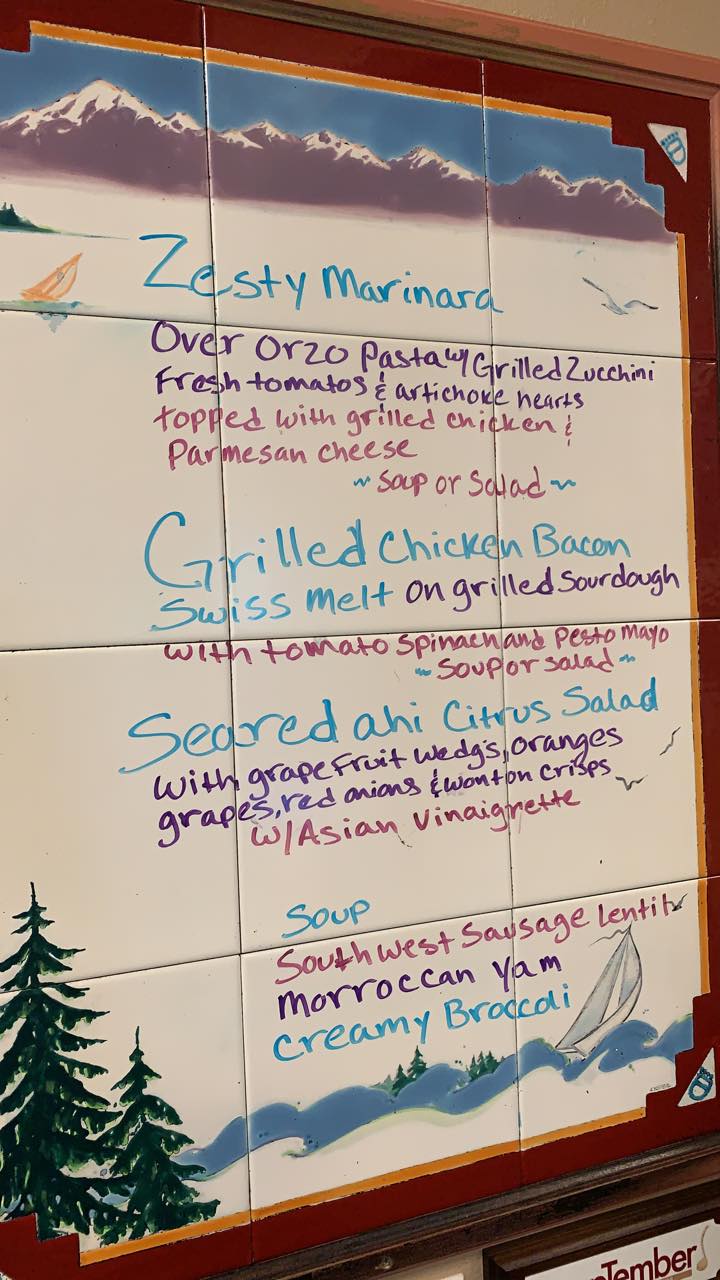 Zesty Marinara
Over Orzo Pasta w/ Grilled Zucchini
Fresh tomatos & artichoke hearts
topped with grilled chicken &
Parmesan cheese
~ Soup or Salad ~
Grilled Chicken Bacon
Swiss melt on grilled Sourdough
with tomato Spinach and Pesto Mayo
~ Soup or Salad ~
Seared ahi Citrus Salad
with grapefruit wedgs, oranges
grapes, red onions & wonton crisps
w/Asian Vinaigrette
Soup
Southwest Sausage Lentil
Morroccan Yam
Creamy Broccoli
Tember